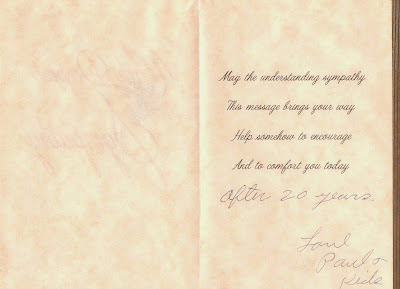 May the understanding sympathy
This message brings your way
Help somehow to encourage
And to comfort you today
after 20 years.
Love
Paul &
Kids